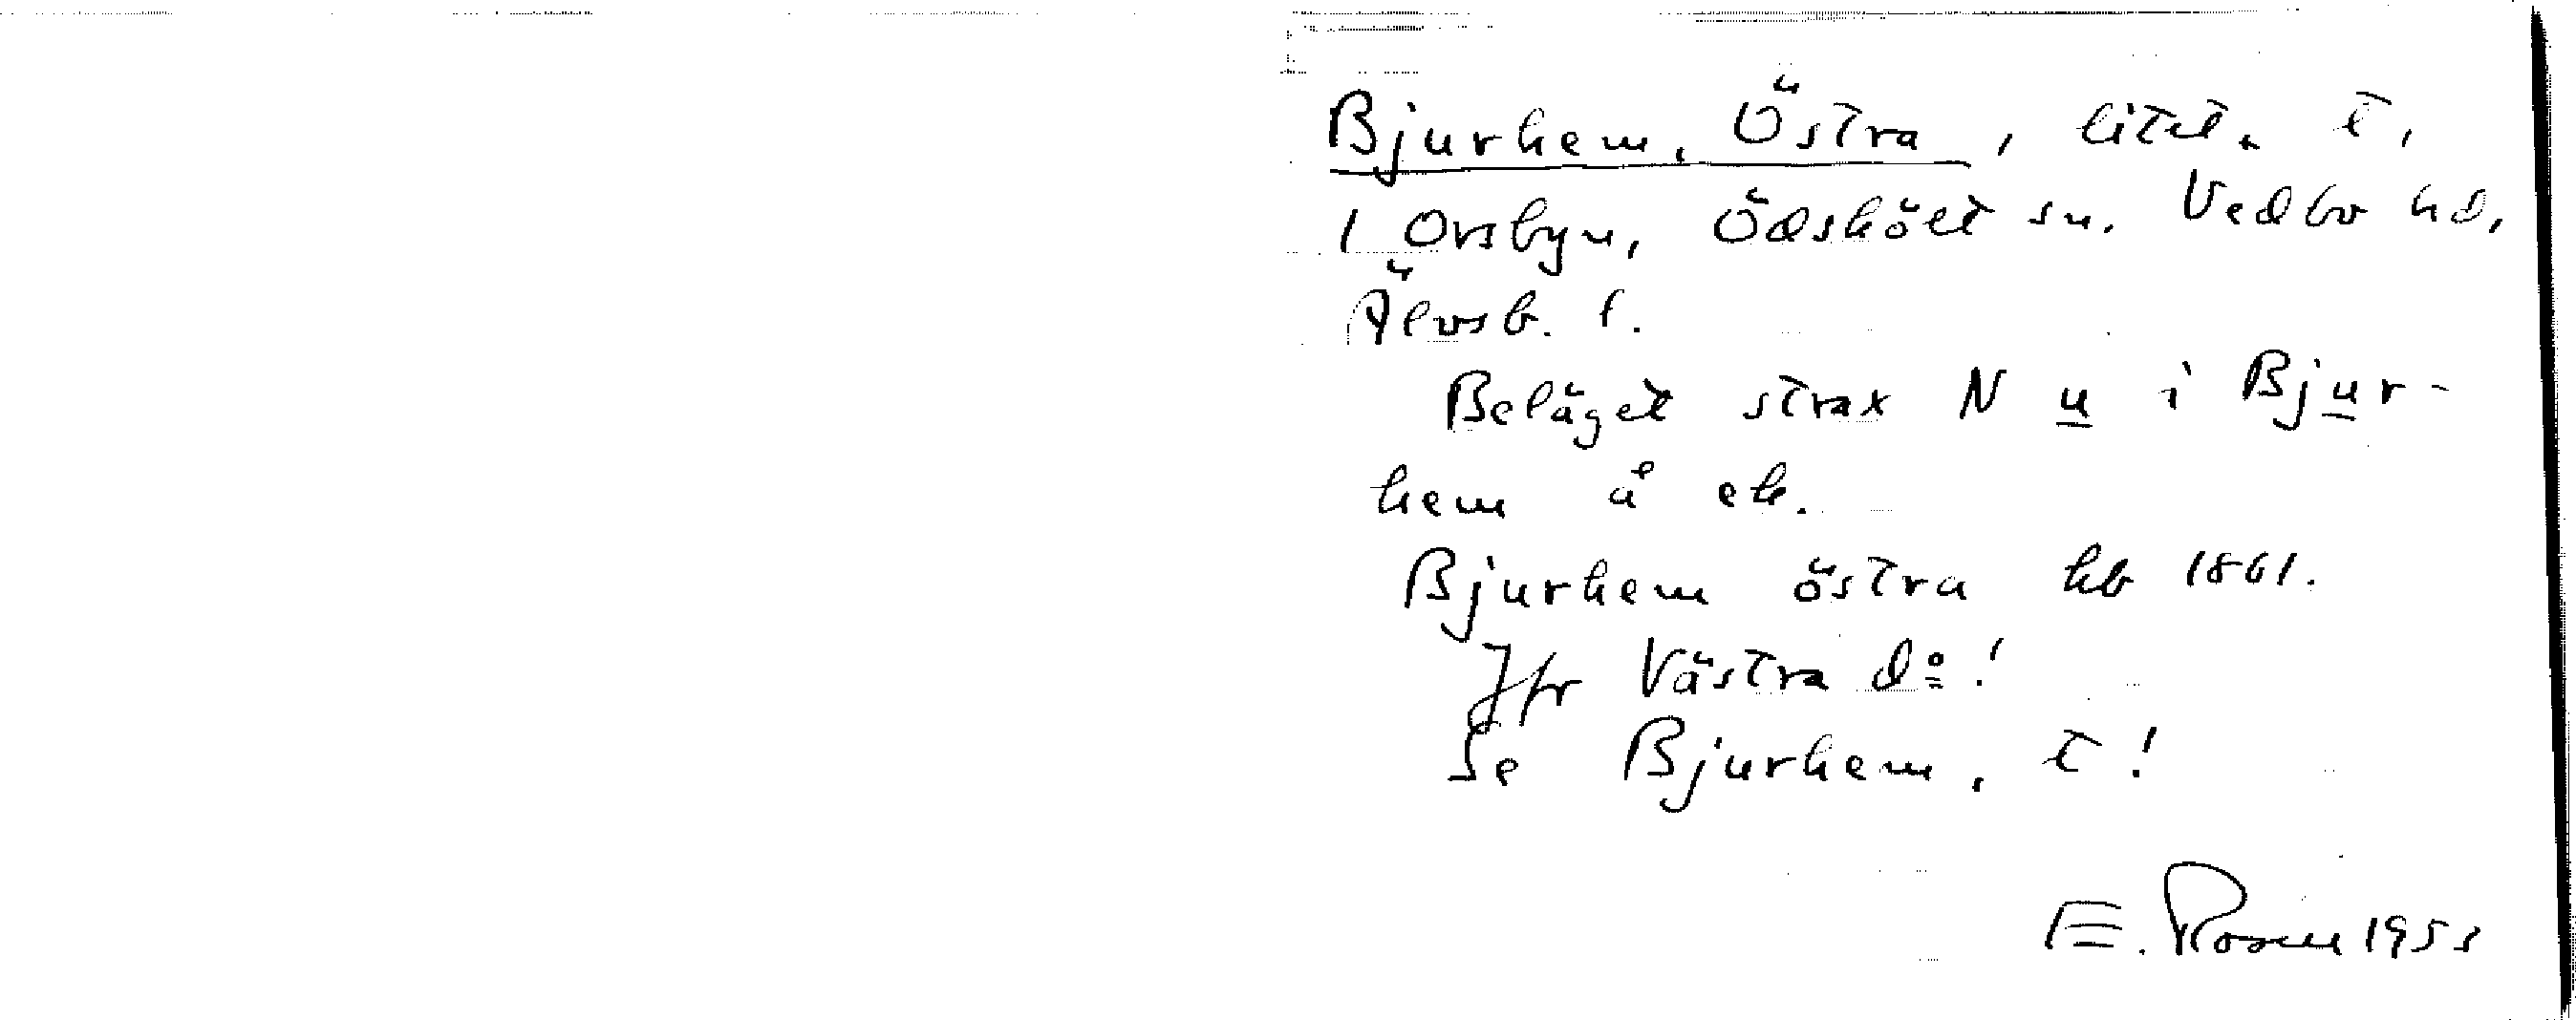 Bjurhem, Östra, litet t,
i Orsbyn, Ödskölt sn. Vedbo hd,
Älvsb. l.
Beläget strax N u i Bjur-
hem å ek.
Bjurhem östra hb 1861.
Jfr Västra do!
Se Bjurhem, t!
E. Rosell 1955